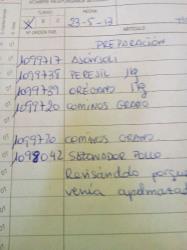 FECHA
X B C 23-5-13
Nº ORDEN FAB.
ARTÍCULO
PREPARACIÓN
1099717 AJONJOLI
1099738 PEREJIL 1kg
1099739 ORÉGANO 1kg
1099720 COMINOS GRANO
1099720 COMINOS GRANO
1098042 SAZONADOR POLLO
Revisándolo porque
venía apelmazado